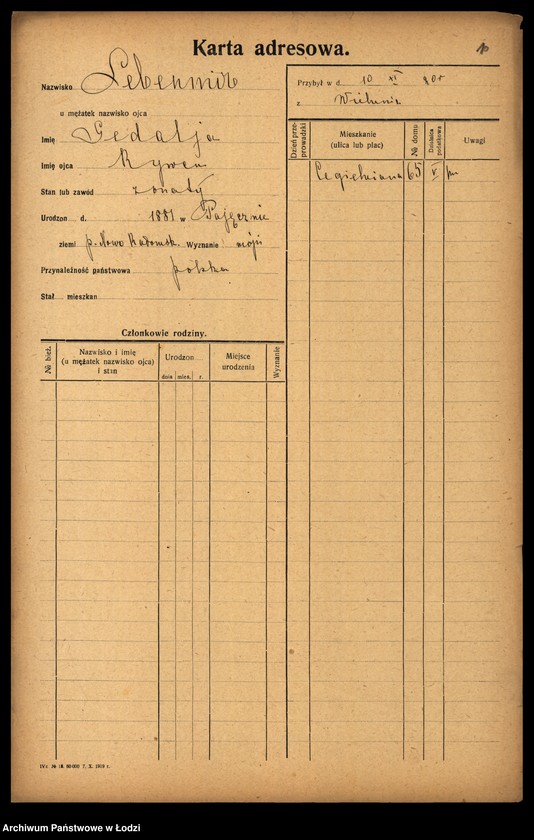 Karta adresowa.
Nazwisko
u mężatek nazwisko ojca
Imię Gedalja
Imię ojca Rywen
Stan lub zawód żonaty
Urodzon d. 1881 w Pajęcznie
ziemi p. Nowo Radomsk. Wyznanie mojż
Przynależność państwowa polska
Stał mieszkan
Członkowie rodziny.
№ bież.
Nazwisko i imię
(u mężatek nazwisko ojca)
i stan
Urodzon
dnia mies. r.
Miejsce
urodzenia
Wyznanie
Przybył w d. 10 XI
z Wielunia
Dzień prze-
prowadzki
Mieszkanie
(ulica lub plac)
№ domu
Dzielnica
podatkowa
Uwagi
Cegielniana 65 V
IVc № 18. 60 000 7. X. 1919 r.
Archiwum Państwowe w Łodzi